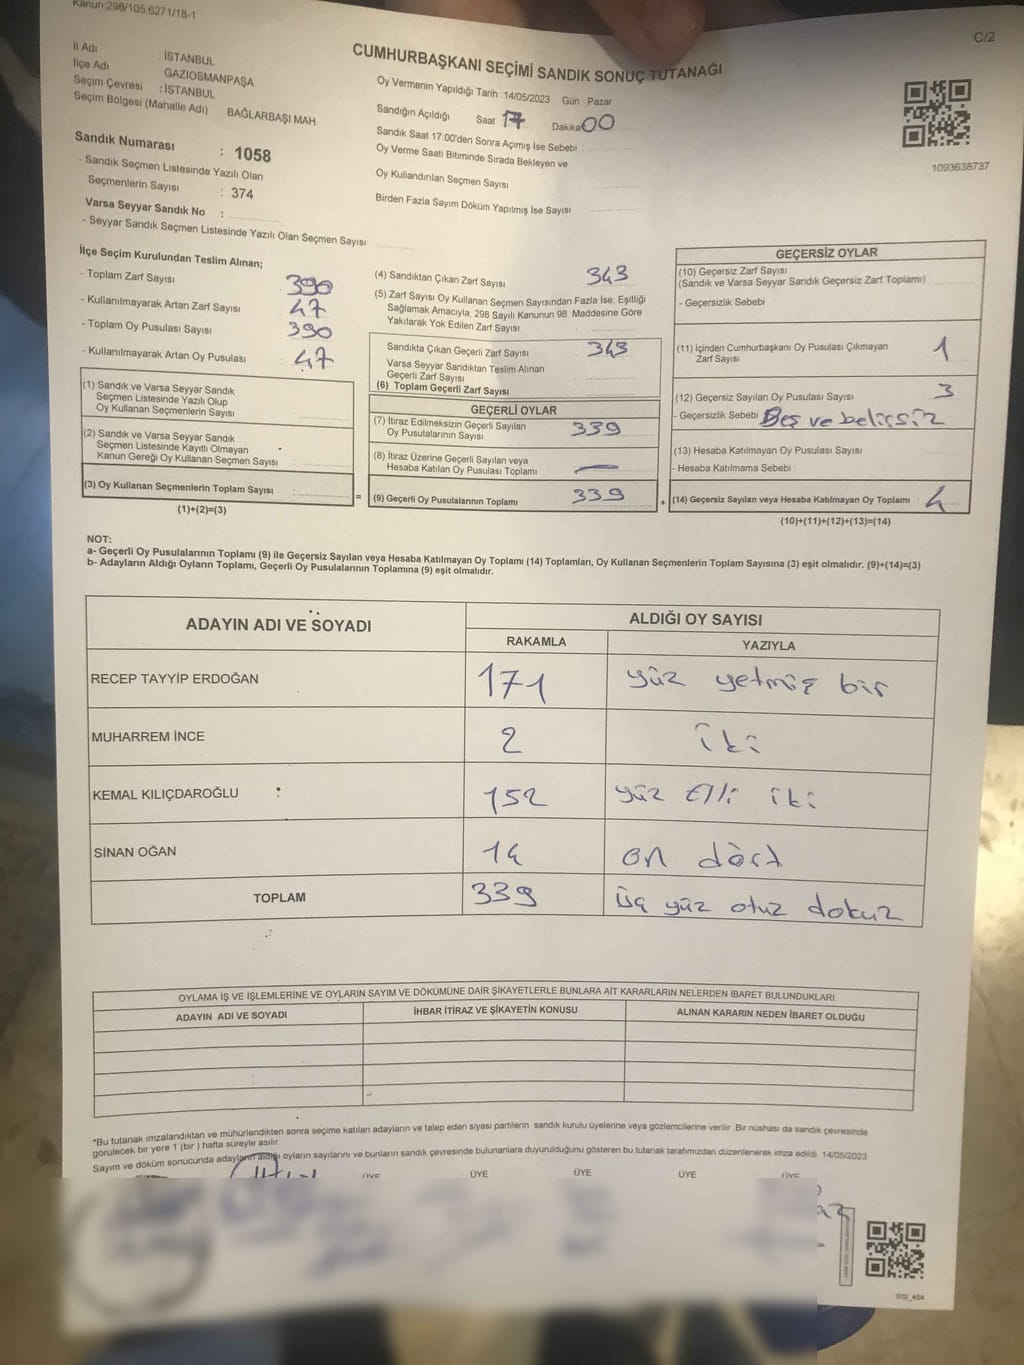 Kanun:298/105,6271/18-1
C/2
İl Adı : İSTANBUL
İlçe Adı GAZİOSMANPAŞA
Seçim Çevresi : İSTANBUL
Seçim Bölgesi (Mahalle Adı) BAĞLARBAŞI MAH.
Sandık Numarası : 1058
- Sandık Seçmen Listesinde Yazılı Olan
Seçmenlerin Sayısı : 374
Varsa Seyyar Sandık No :
- Seyyar Sandık Seçmen Listesinde Yazılı Olan Seçmen Sayısı:
CUMHURBAŞKANI SEÇİMİ SANDIK SONUÇ TUTANAĞI
Oy Vermenin Yapıldığı Tarih :14/05/2023 Gün : Pazar
Sandığın Açıldığı Saat 17 Dakika 00
Sandık Saat 17:00'den Sonra Açımış İse Sebebi
Oy Verme Saati Bitiminde Sırada Bekleyen ve
Oy Kullandırılan Seçmen Sayısı
Birden Fazla Sayım Döküm Yapılmış İse Sayısı
1093638737
İlçe Seçim Kurulundan Teslim Alınan;
- Toplam Zarf Sayısı 390
- Kullanılmayarak Artan Zarf Sayısı 47
- Toplam Oy Pusulası Sayısı 390
- Kullanılmayarak Artan Oy Pusulası 47
(1) Sandık ve Varsa Seyyar Sandık
Seçmen Listesinde Yazılı Olup
Oy Kullanan Seçmenlerin Sayısı
(2) Sandık ve Varsa Seyyar Sandık
Seçmen Listesinde Kayıtlı Olmayan
Kanun Gereği Oy Kullanan Seçmen Sayısı
(3) Oy Kullanan Seçmenlerin Toplam Sayısı : =
(1)+(2)=(3)
(4) Sandıktan Çıkan Zarf Sayısı 343
(5) Zarf Sayısı Oy Kullanan Seçmen Sayısından Fazla İse, Eşitliği
Sağlamak Amacıyla, 298 Sayılı Kanunun 98. Maddesine Göre
Yakılarak Yok Edilen Zarf Sayısı
Sandıkta Çıkan Geçerli Zarf Sayısı 343
Varsa Seyyar Sandıktan Teslim Alınan
Geçerli Zarf Sayısı
(6) Toplam Geçerli Zarf Sayısı
GEÇERLİ OYLAR
(7) İtiraz Edilmeksizin Geçerli Sayılan
Oy Pusulalarının Sayısı 339
(8) İtiraz Üzerine Geçerli Sayılan veya
Hesaba Katılan Oy Pusulası Toplamı —
(9) Geçerli Oy Pusulalarının Toplamı 339 +
GEÇERSİZ OYLAR
(10) Geçersiz Zarf Sayısı
(Sandık ve Varsa Seyyar Sandık Geçersiz Zarf Toplamı)
- Geçersizlik Sebebi
(11) İçinden Cumhurbaşkanı Oy Pusulası Çıkmayan
Zarf Sayısı 1
(12) Geçersiz Sayılan Oy Pusulası Sayısı 3
- Geçersizlik Sebebi Beş ve belirsiz
(13) Hesaba Katılmayan Oy Pusulası Sayısı
- Hesaba Katılmama Sebebi :
(14) Geçersiz Sayılan veya Hesaba Katılmayan Oy Toplamı 4
(10)+(11)+(12)+(13)=(14)
NOT:
a- Geçerli Oy Pusulalarının Toplamı (9) ile Geçersiz Sayılan veya Hesaba Katılmayan Oy Toplamı (14) Toplamları, Oy Kullanan Seçmenlerin Toplam Sayısına (3) eşit olmalıdır. (9)+(14)=(3)
b- Adayların Aldığı Oyların Toplamı, Geçerli Oy Pusulalarının Toplamına (9) eşit olmalıdır.
ADAYIN ADI VE SOYADI
ALDIĞI OY SAYISI
RAKAMLA YAZIYLA
RECEP TAYYİP ERDOĞAN 171 yüz yetmiş bir
MUHARREM İNCE 2 iki
KEMAL KILIÇDAROĞLU 152 yüz elli iki
SİNAN OĞAN 14 on dört
TOPLAM 339 üç yüz otuz dokuz
OYLAMA İŞ VE İŞLEMLERİNE VE OYLARIN SAYIM VE DÖKÜMÜNE DAİR ŞİKAYETLERLE BUNLARA AİT KARARLARIN NELERDEN İBARET BULUNDUKLARI
ADAYIN ADI VE SOYADI İHBAR İTİRAZ VE ŞİKAYETİN KONUSU ALINAN KARARIN NEDEN İBARET OLDUĞU
*Bu tutanak imzalandıktan ve mühürlendikten sonra seçime katılan adayların ve talep eden siyasi partilerin sandık kurulu üyelerine veya gözlemcilerine verilir. Bir nüshası da sandık çevresinde
görülecek bir yere 1 (bir) hafta süreyle asılır.
Sayım ve döküm sonucunda adayların aldığı oyların sayılarını ve bunların sandık çevresinde bulunanlara duyurulduğunu gösteren bu tutanak tarafımızdan düzenlenerek imza edildi. 14/05/2023
ÜYE ÜYE ÜYE ÜYE ÜYE